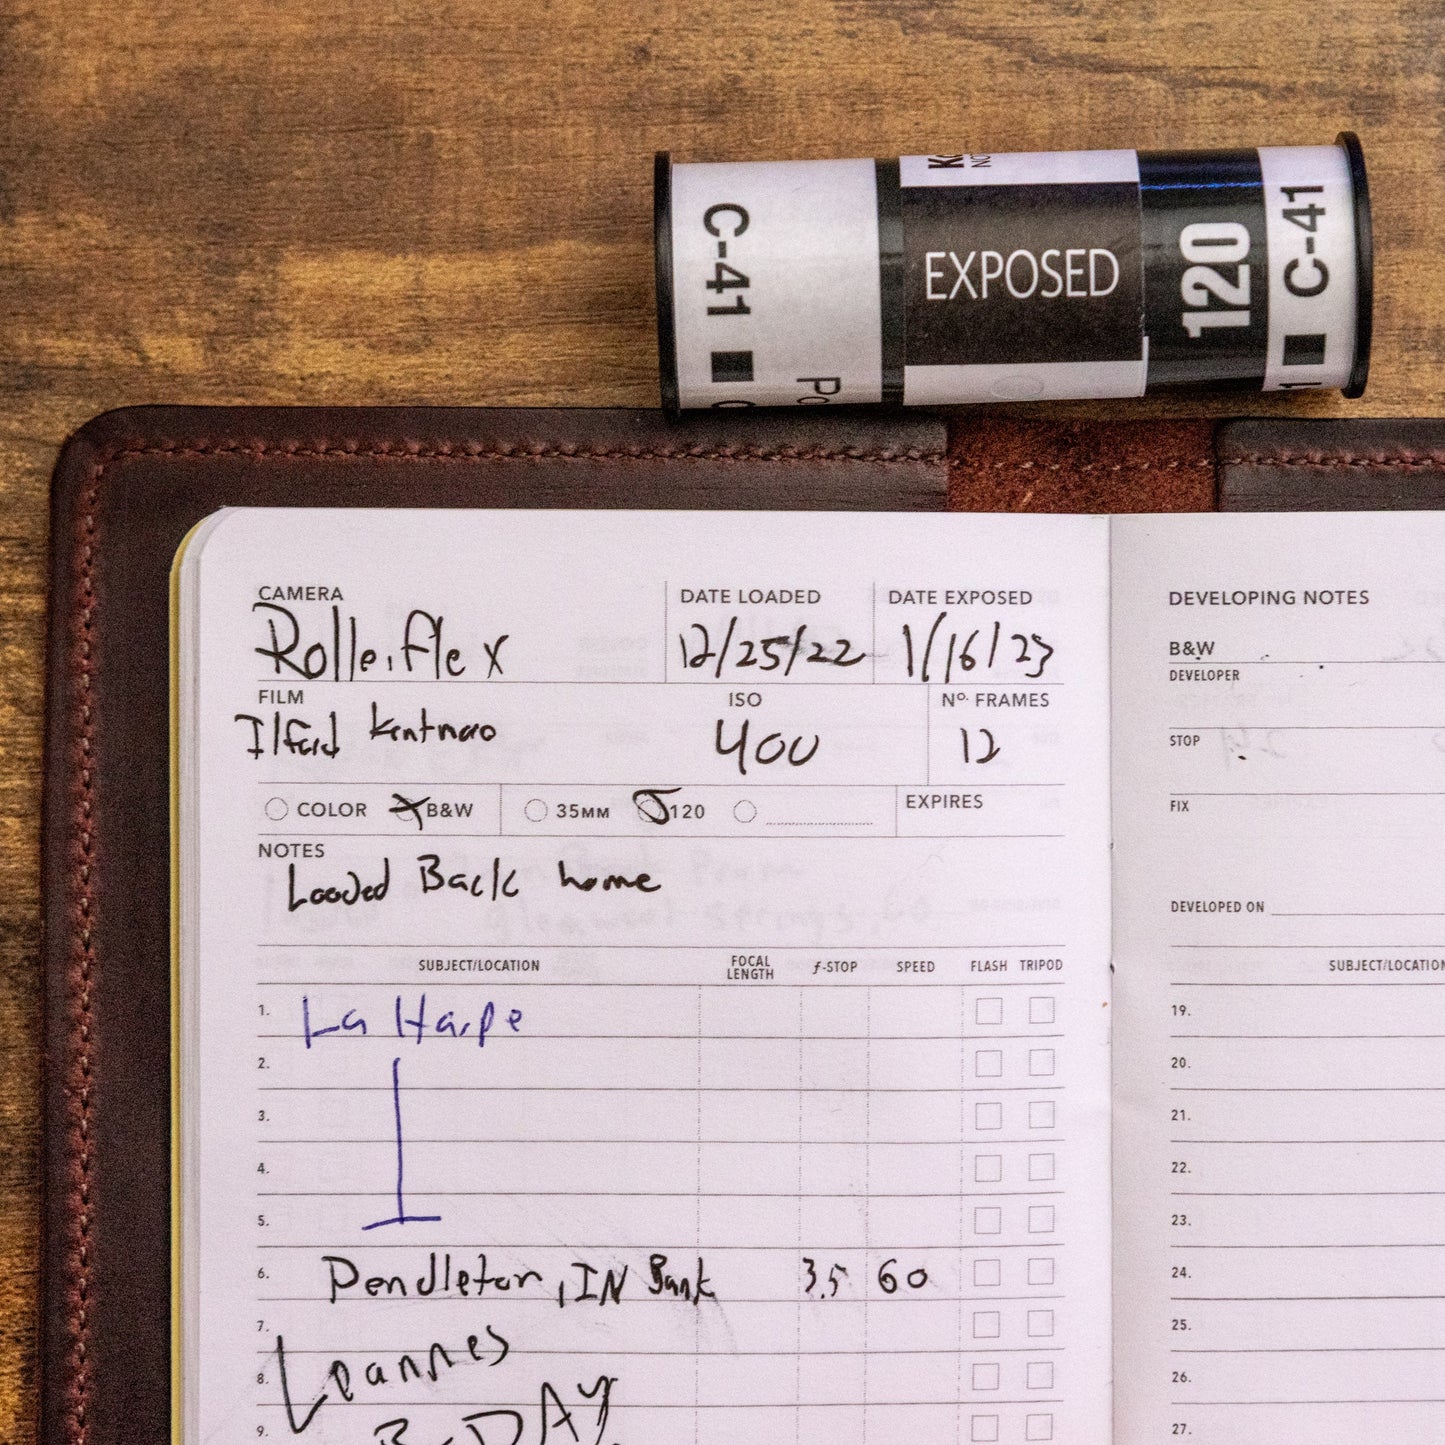 C-41
EXPOSED
120
C-41
CAMERA
Rolleiflex
DATE LOADED
12/25/22
DATE EXPOSED
1/16/23
FILM
Ilford Kentmero
ISO
400
Nº. FRAMES
12
COLOR B&W 35MM 120
EXPIRES
NOTES
Loaded Back home
SUBJECT/LOCATION FOCAL LENGTH ƒ-STOP SPEED FLASH TRIPOD
1. La Harpe
2.
3.
4.
5.
6. Pendleton, IN Bank 3.5 60
7.
Leannes
8.
B-DAY
9.
DEVELOPING NOTES
B&W
DEVELOPER
STOP
FIX
DEVELOPED ON
SUBJECT/LOCATION
19.
20.
21.
22.
23.
24.
25.
26.
27.